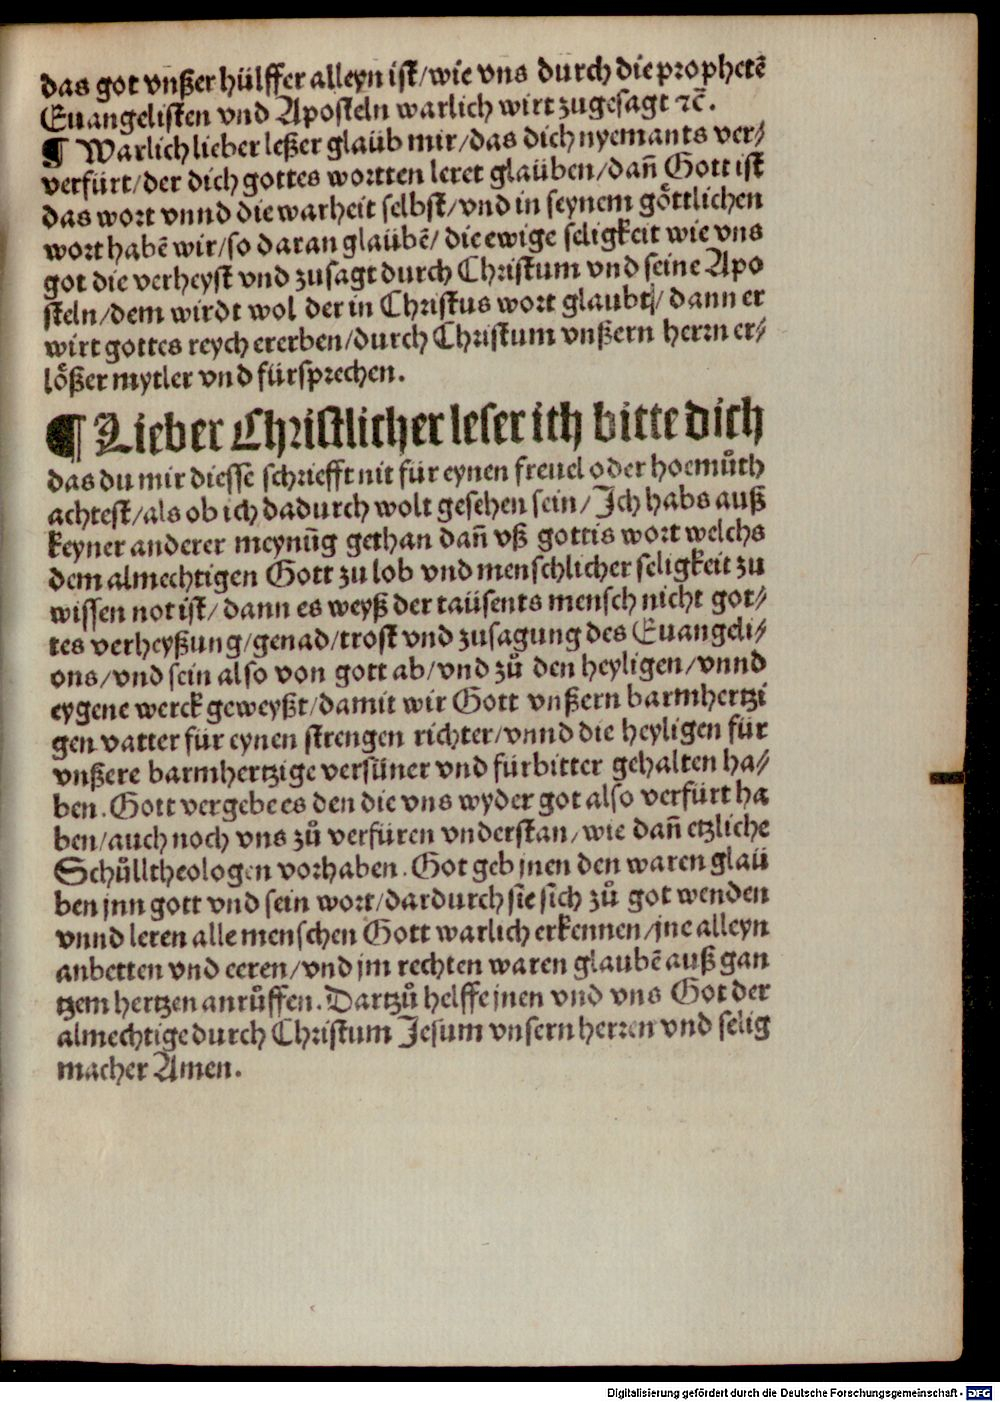 das got vnßer hülffer alleyn ist/wie vns durch die prophetē
Euangelisten vnd Aposteln warlich wirt zugesagt ⁊c̄.
¶ Warlich lieber leßer glaüb mir/das dich nyemants ver⸗
verfürt/der dich gottes wortten leret glaüben/dañ Gott ist
das wort vnnd die warheit selbst/vnd in seynem göttlichen
wort habē wir/so daran glaübē/die ewige seligkeit wie vns
got die verheyst vnd zusagt durch Christum vnd seine Apo
steln/dem wirdt wol der in Christus wort glaubt/dann er
wirt gottes reych ererben/durch Christum vnßern herrn er⸗
lößer mytler vnd fürsprechen.
¶ Lieber Christlicher leser ich bitte dich
das du mir diesse schriefft nit für eynen freuel oder hocmůth
achtest/als ob ich dadurch wolt gesehen sein/Ich habs auß
keyner anderer meynūg gethan dañ vß gottis wort welchs
dem almechtigen Gott zu lob vnd menschlicher seligkeit zu
wissen not ist/dann es weyß der taüsents mensch nicht got⸗
tes verheyßung/genad/trost vnd zusagung des Euangeli⸗
ons/vnd sein also von gott ab/vnd zů den heyligen/vnnd
eygene werck geweyßt/damit wir Gott vnßern barmhertzi
gen vatter für eynen strengen richter/vnnd die heyligen für
vnßere barmhertzige versüner vnd fürbitter gehalten ha⸗
ben. Gott vergebe es den die vns wyder got also verfürt ha
ben/auch noch vns zů verfüren vnderstan/wie dañ etzliche
Schůlltheologen vorhaben. Got geb jnen den waren glaü
ben jnn gott vnd sein wort/dardurch sie sich zů got wenden
vnnd leren alle menschen Gott warlich erkennen/jne alleyn
anbetten vnd eeren/vnd jm rechten waren glaubē auß gan
tzem hertzen anrůffen. Dartzů helffe jnen vnd vns Got der
almechtige durch Christum Jesum vnsern herren vnd selig
macher Amen.
Digitalisierung gefördert durch die Deutsche Forschungsgemeinschaft - DFG